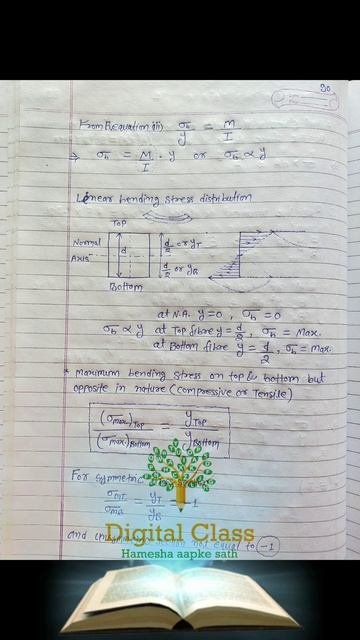 90
From Requation (ii) σb/y = M/I
⇒ σb = M/I · y or σb ∝ y
Linear bending stress distribution
Top
Normal Axis
d
d/2 or yT
d/2 or yB
Bottom
at N.A. y=0, σb = 0
σb ∝ y at Top fibre y = d/2, σb = Max.
at Bottom fibre y = d/2, σb = Max.
* Maximum bending stress on top & bottom but
opposite in nature (compressive or Tensile)
(σmax)Top / (σmax)Bottom = yTop / yBottom
For symmetric
σmT / σmB = yT / yB = 1
Digital Class
and not equal to -1
Hamesha aapke sath